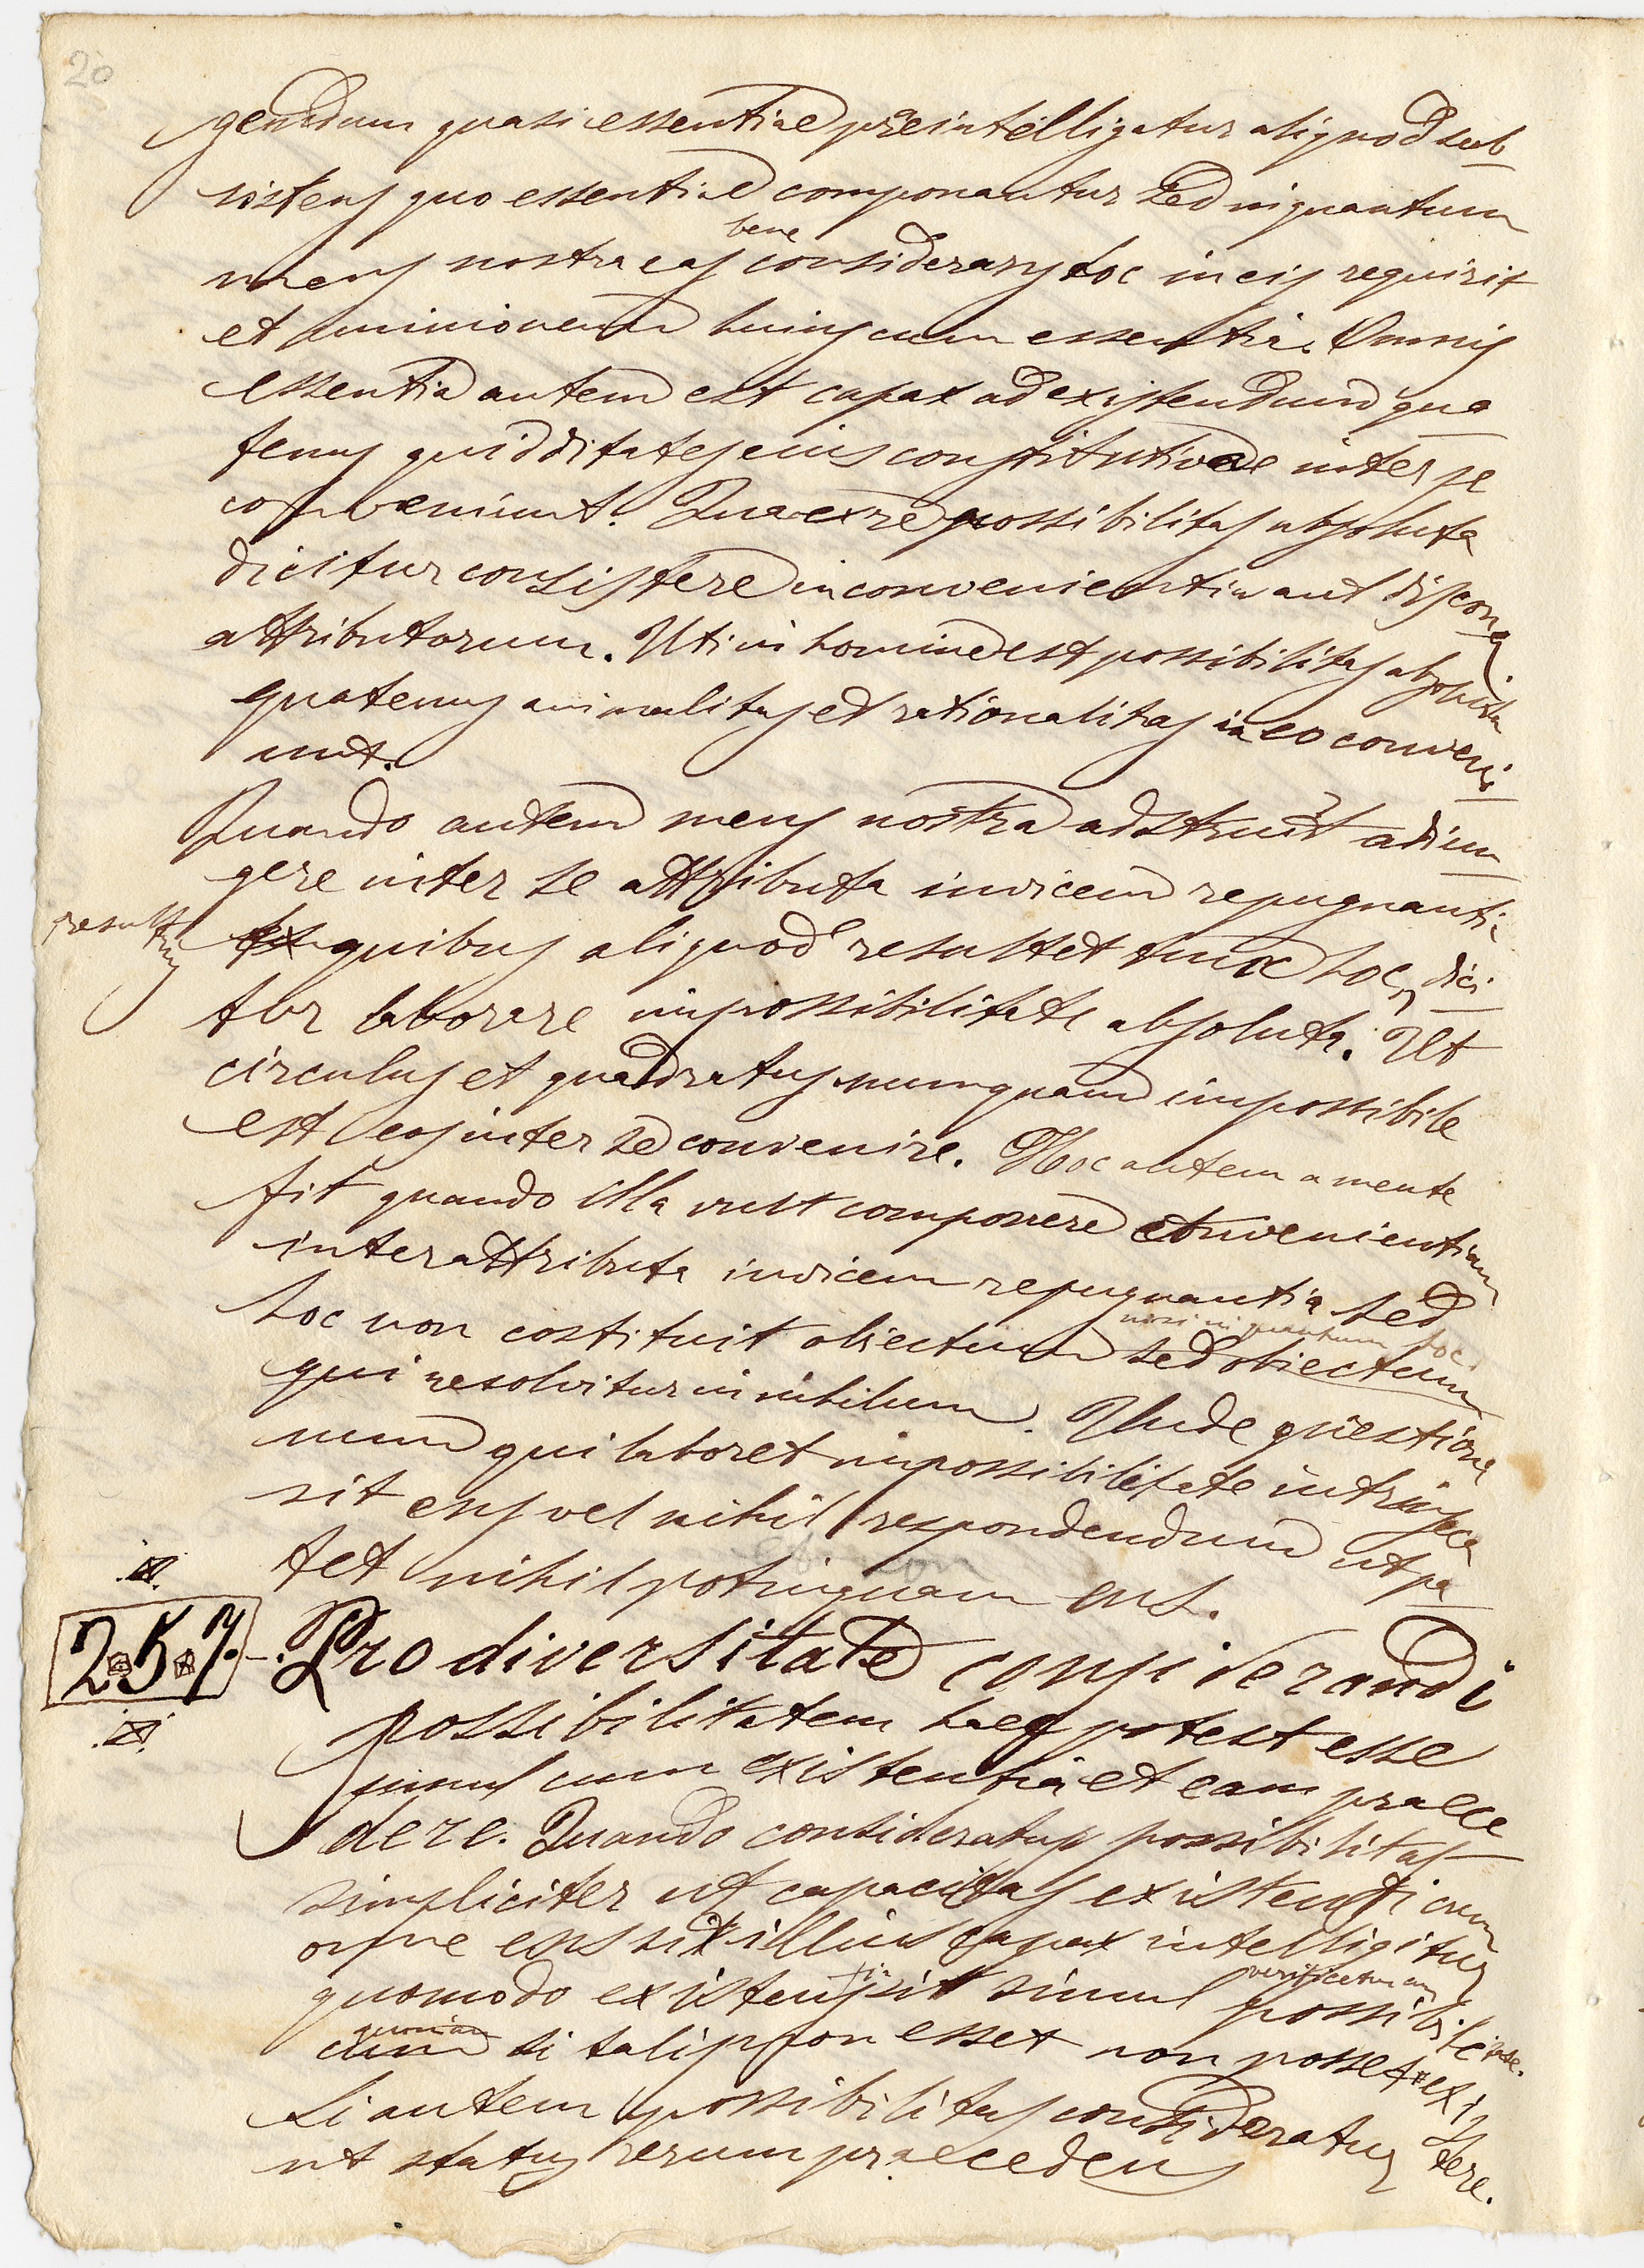 20
gendum quasi essentiae praeintelligatur aliquod sub
sistens quo essentiae componantur sed inquantum
bene
mens nostra eas considerans hoc in eis requirit
et unionem huius cum essentia. Omnis
essentia autem est capax ad existendum qua
tenus quidditates eius constitutivae inter se
conveniunt. Qua ex re possibilitas absoluta
dicitur consistere in convenientia aut discon
attributorum. Uti in homine est possibilitas absoluta
quatenus animalitas et rationalitas in eo conveni
unt.
Quando autem mens nostra adstruit adiun
gere inter se attributa invicem repugnantia
resultans
quibus aliquod resultet tunc hoc dici
tur laborare impossibilitate absoluta. Ut
circulus et quadratus numquam impossibile
est eos inter se convenire. Hoc autem a mente
fit quando illa vult componere convenientiam
inter attributa invicem repugnantia sed
nisi in quantum hoc
hoc non costituit obiectum sed obiectum
qui resolvitur in nihilum. Unde questione
num qui laboret impossibilitate intrinseca
sit ens vel nihil respondendum ut pa
tet nihil potius quam ens.
2.5.7. Pro diversitate considerandi
possibilitatem haec potest esse
simul cum existentia et eam praece
dere. Quando consideratur possibilitas
simpliciter ut capacitas existendi cum
omne ens sit illius capax intelligitur
verificetur
quomodo existens sit simul possibile
quoniam
cum si talis non esset non posset existere.
Si autem possibilitas consideratur
ut status rerum praecedens